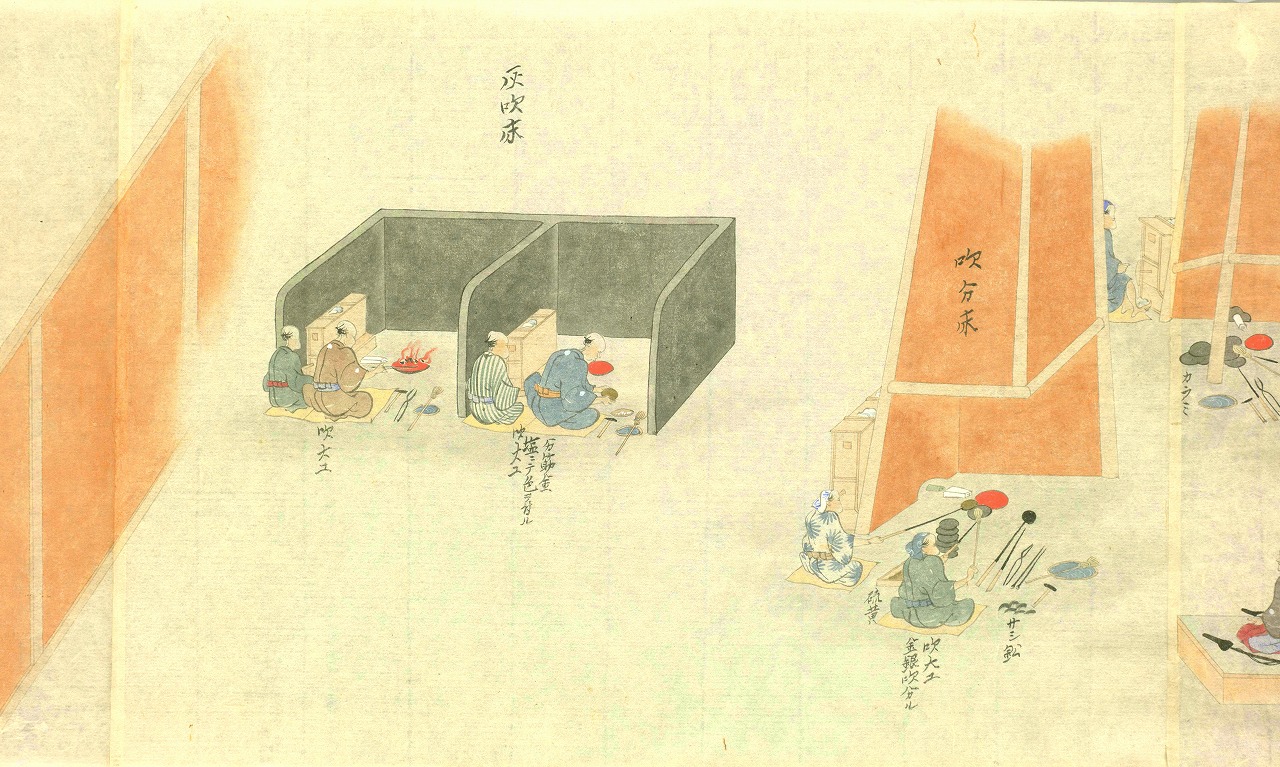 カラミ
吹分床
サシ鈆
吹大工
金銀吹分ル
硫黄
灰吹床
分筋金
塩ニテ色ヲ付ル
吹大工
吹大工